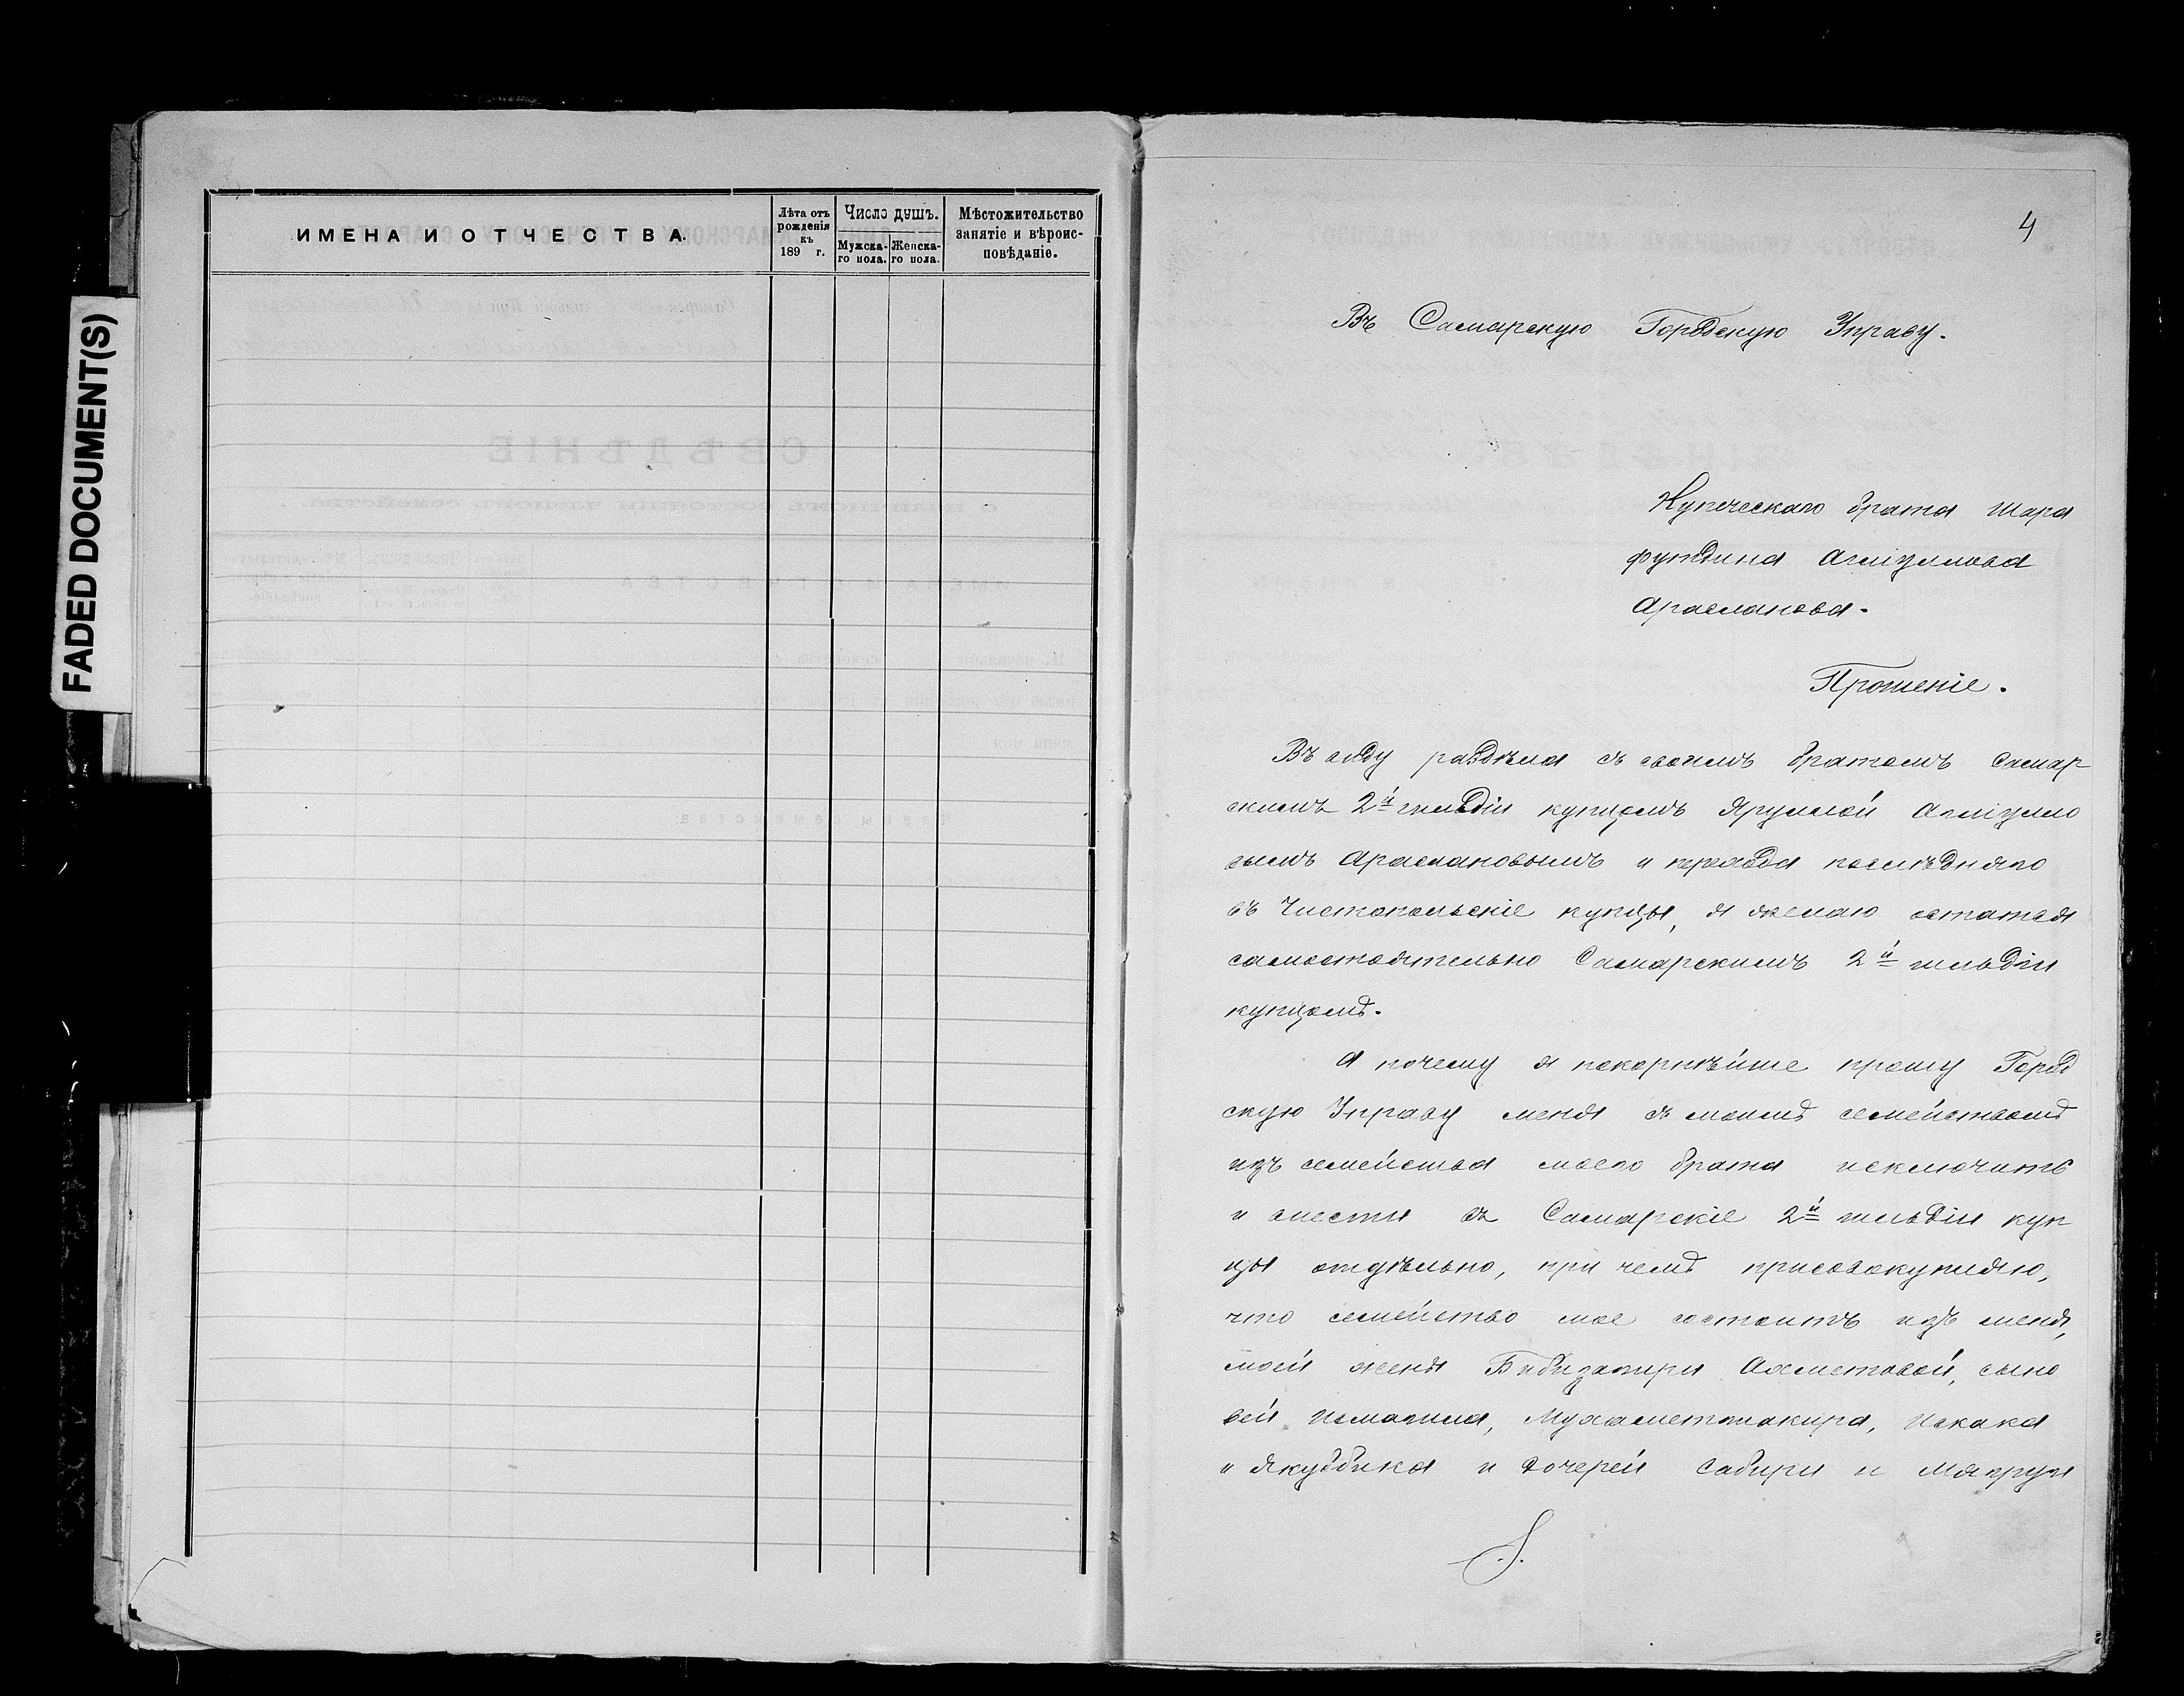 FADED DOCUMENT(S)
ИМЕНА И ОТЧЕСТВА.
Лѣта отъ рожденія къ 189 г.
Число душъ.
Мужска-го пола.
Женска-го пола.
Мѣстожительство занятіе и вѣроис-повѣданіе.
4
Въ Самарскую Городскую Управу.
Купеческаго брата Шара
футдина Аглуллова
Арасланова.
Прошеніе.
Въ виду раздѣла съ своимъ братомъ Самар
скимъ 2й гильдіи купцомъ Яруллой
вымъ Араслановымъ и перехода послѣдняго
въ Чистопольскіе купцы, я желаю остатся
самостоятельно Самарскимъ 2й гильдіи
купцомъ.
А почему я покорнѣйше прошу Город
скую Управу меня съ моимъ семействомъ
изъ семейства моего брата исключить
и внести въ Самарскіе 2й гильдіи куп
цы отдѣльно, при чемъ присовокупляю,
что семейство мое состоитъ изъ меня,
моей жены Ахметовой, сыно
вей Исмагила, Мухаметшакира, Искака
и и дочерей Сабири и